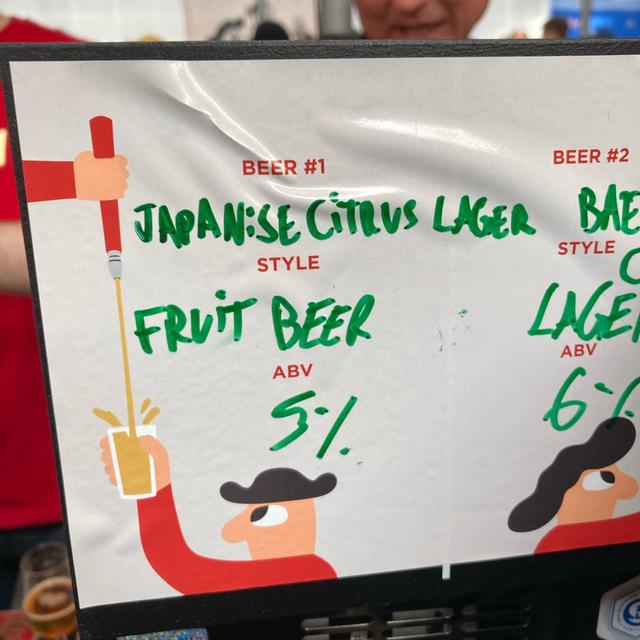 BEER #1
JAPANISE CITRUS LAGER
STYLE
FRUIT BEER
ABV
5%
BEER #2
STYLE
ABV